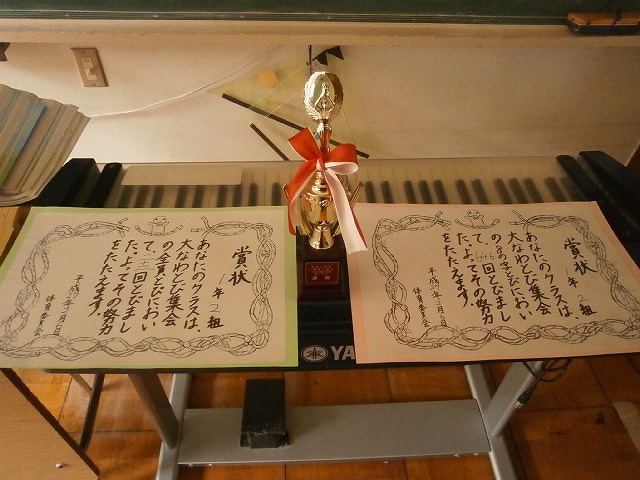 賞状
1年2組
あなたのクラスは、
大なわとび集会
の8の字とびにおい
て、
回とびまし
た。よってその努力
をたたえます。
体育委員会
賞状
1年2組
あなたのクラスは、
大なわとび集会
の全員とびにおい
て、
回とびまし
た。よってその努力
をたたえます。
体育委員会
YA